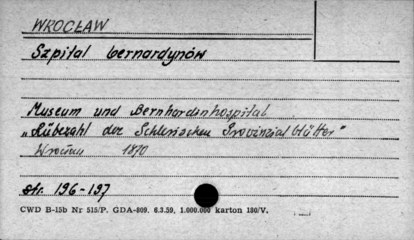 WROCŁAW
Szpital bernardynów
Museum und Bernhardinhospital
"Rübezahl der Schlesischen Provinzialblätter"
1870
str. 196-197
CWD B-15b Nr 515/P. GDA-809. 6.3.59, 1.000.000 karton 180/V.